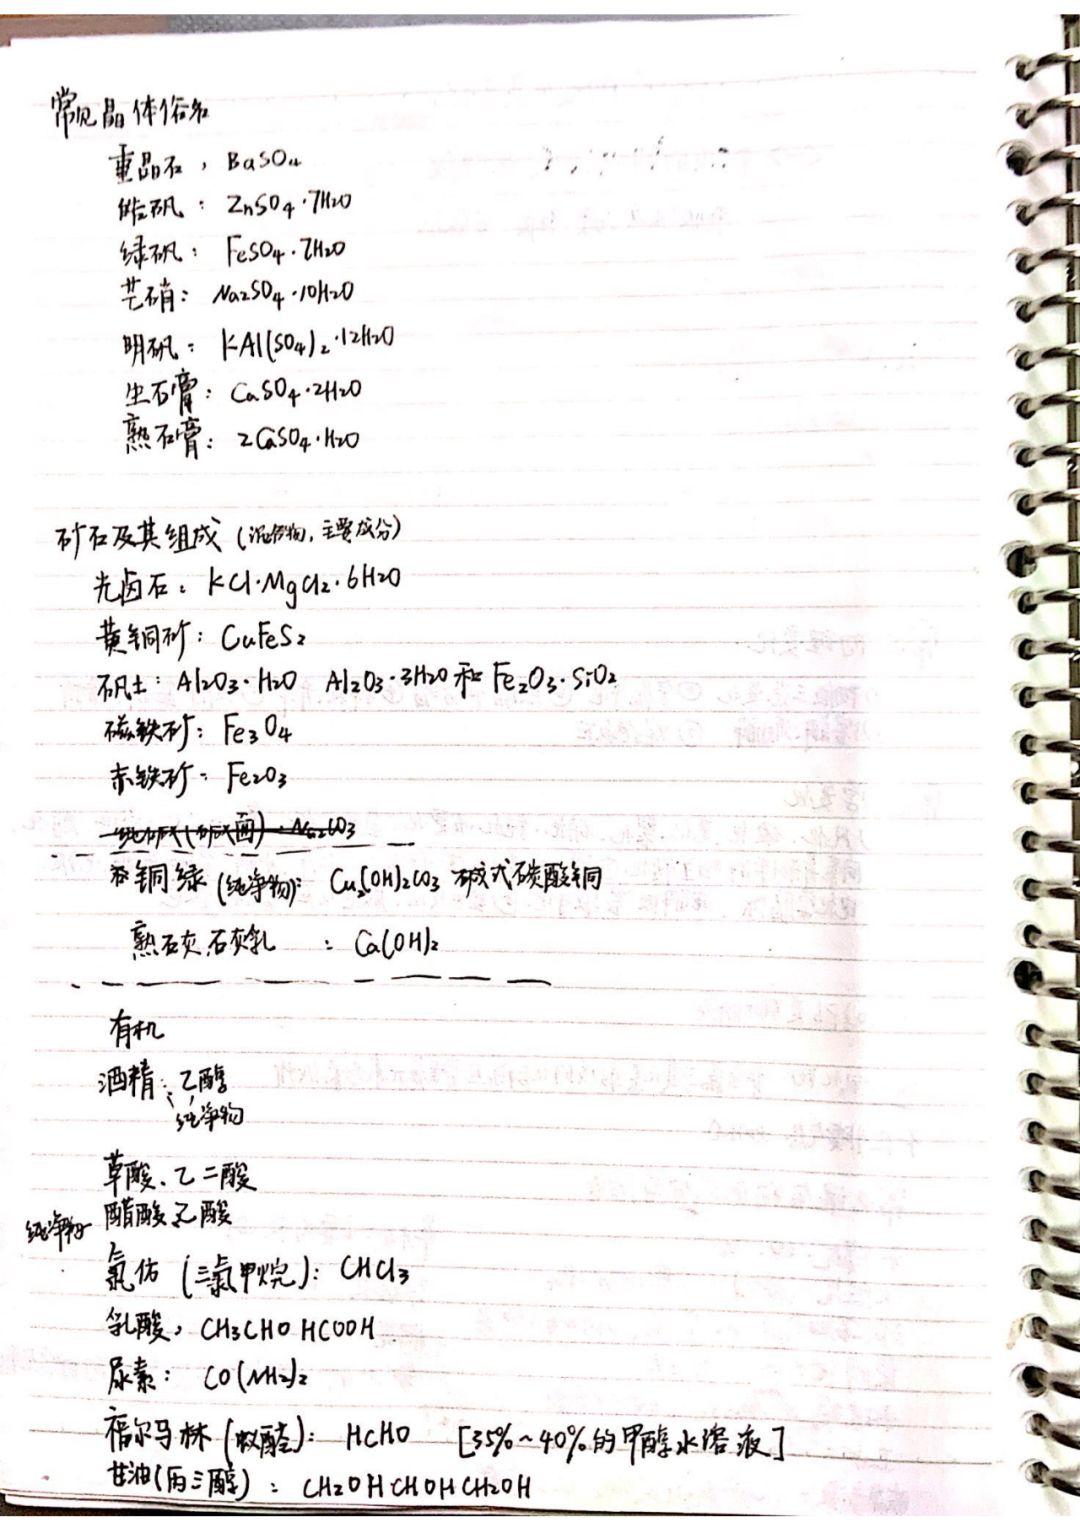 常见晶体俗名
重晶石, BaSO4
皓矾: ZnSO4·7H2O
绿矾: FeSO4·7H2O
芒硝: Na2SO4·10H2O
明矾: KAl(SO4)2·12H2O
生石膏: CaSO4·2H2O
熟石膏: 2CaSO4·H2O
矿石及其组成 (混合物,主要成分)
光卤石: KCl·MgCl2·6H2O
黄铜矿: CuFeS2
矾土: Al2O3·H2O Al2O3·3H2O 和 Fe2O3·SiO2
磁铁矿: Fe3O4
赤铁矿: Fe2O3
纯碱(碱面): Na2CO3
铜绿 (纯净物): Cu2(OH)2CO3 碱式碳酸铜
熟石灰,石灰乳 : Ca(OH)2
有机
酒精: 乙醇
纯净物
草酸、乙二酸
纯净物 醋酸 乙酸
氯仿 (三氯甲烷): CHCl3
乳酸, CH3CHOHCOOH
尿素: CO(NH2)2
福尔马林 (蚁醛): HCHO [35%~40%的甲醇水溶液]
甘油(丙三醇) : CH2OHCHOHCH2OH